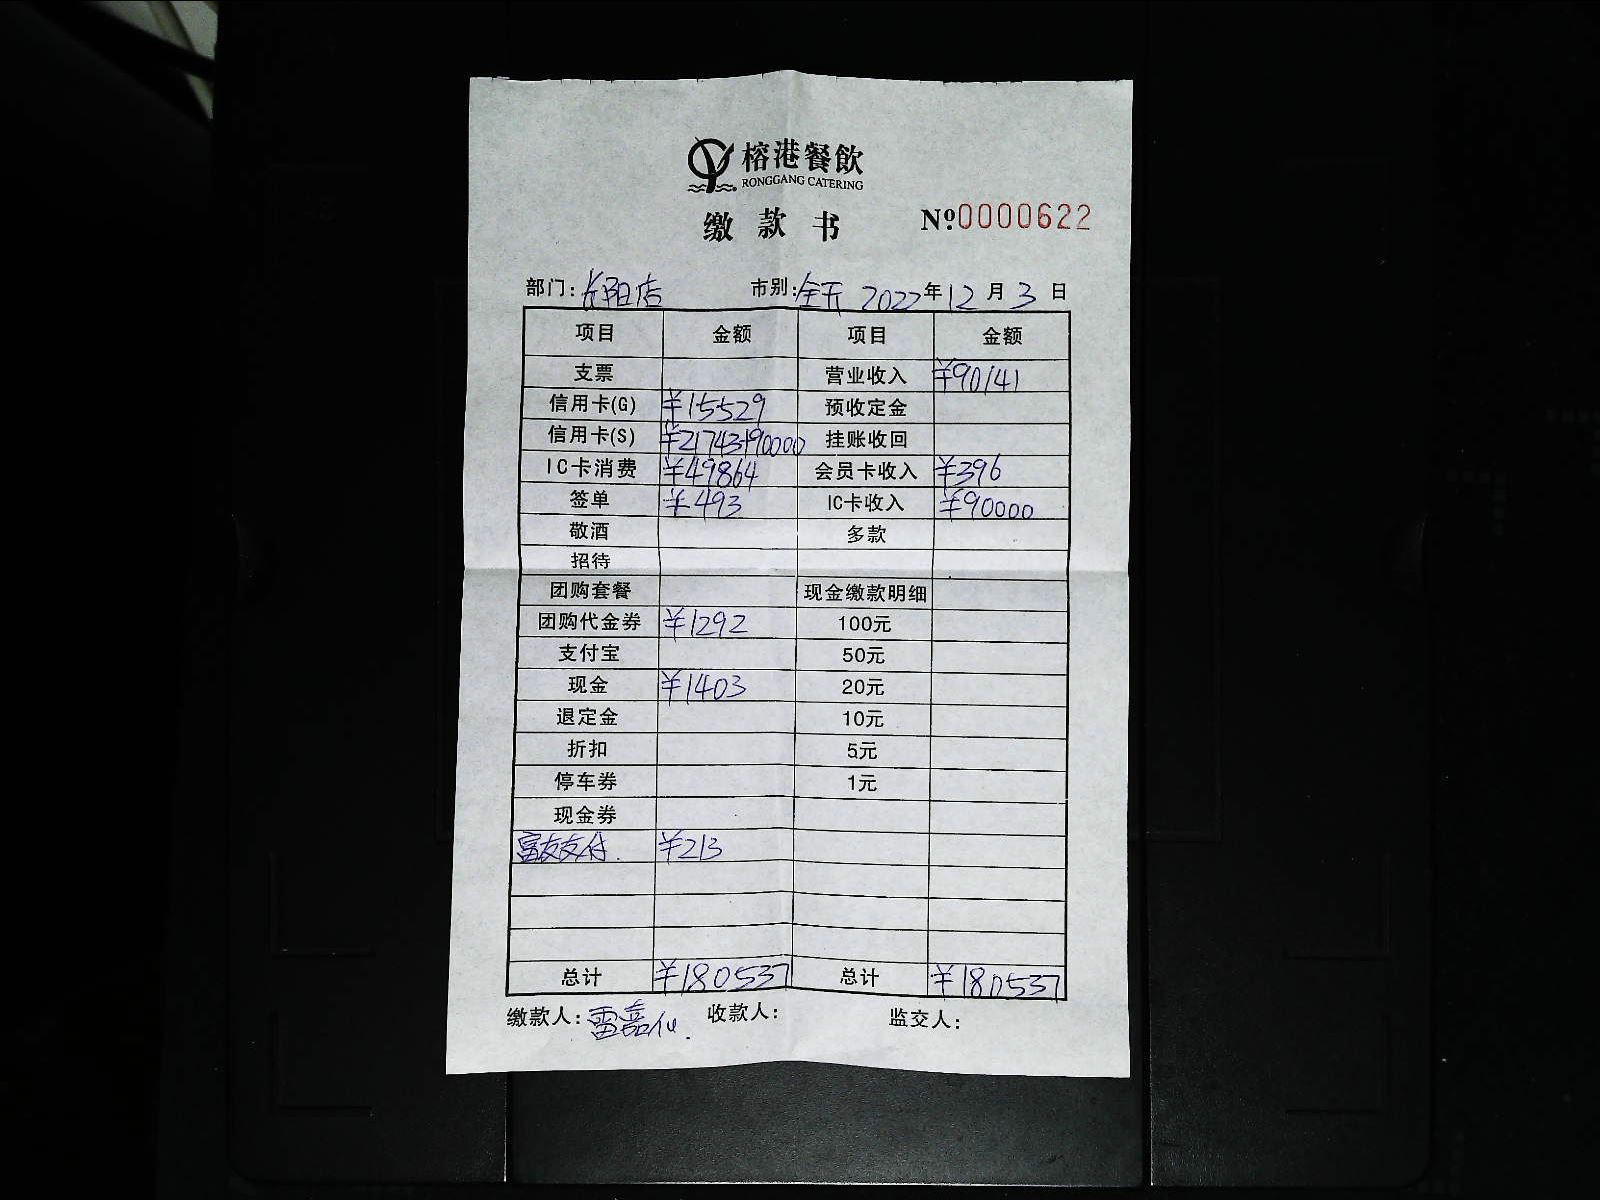 榕港餐飲
RONGGANG CATERING
缴款书 №0000622
部门: 长阳店 市别: 全天 2022年12月3日
项目 金额 项目 金额
支票 营业收入 ¥90141
信用卡(G) ¥15529 预收定金
信用卡(S) ¥21743+90000 挂账收回
IC卡消费 ¥49864 会员卡收入 ¥396
签单 ¥493 IC卡收入 ¥90000
敬酒 多款
招待
团购套餐 现金缴款明细
团购代金券 ¥1292 100元
支付宝 50元
现金 ¥1403 20元
退定金 10元
折扣 5元
停车券 1元
现金券
富友支付. ¥213
总计 ¥180537 总计 ¥180537
缴款人: 雷嘉仪. 收款人: 监交人: